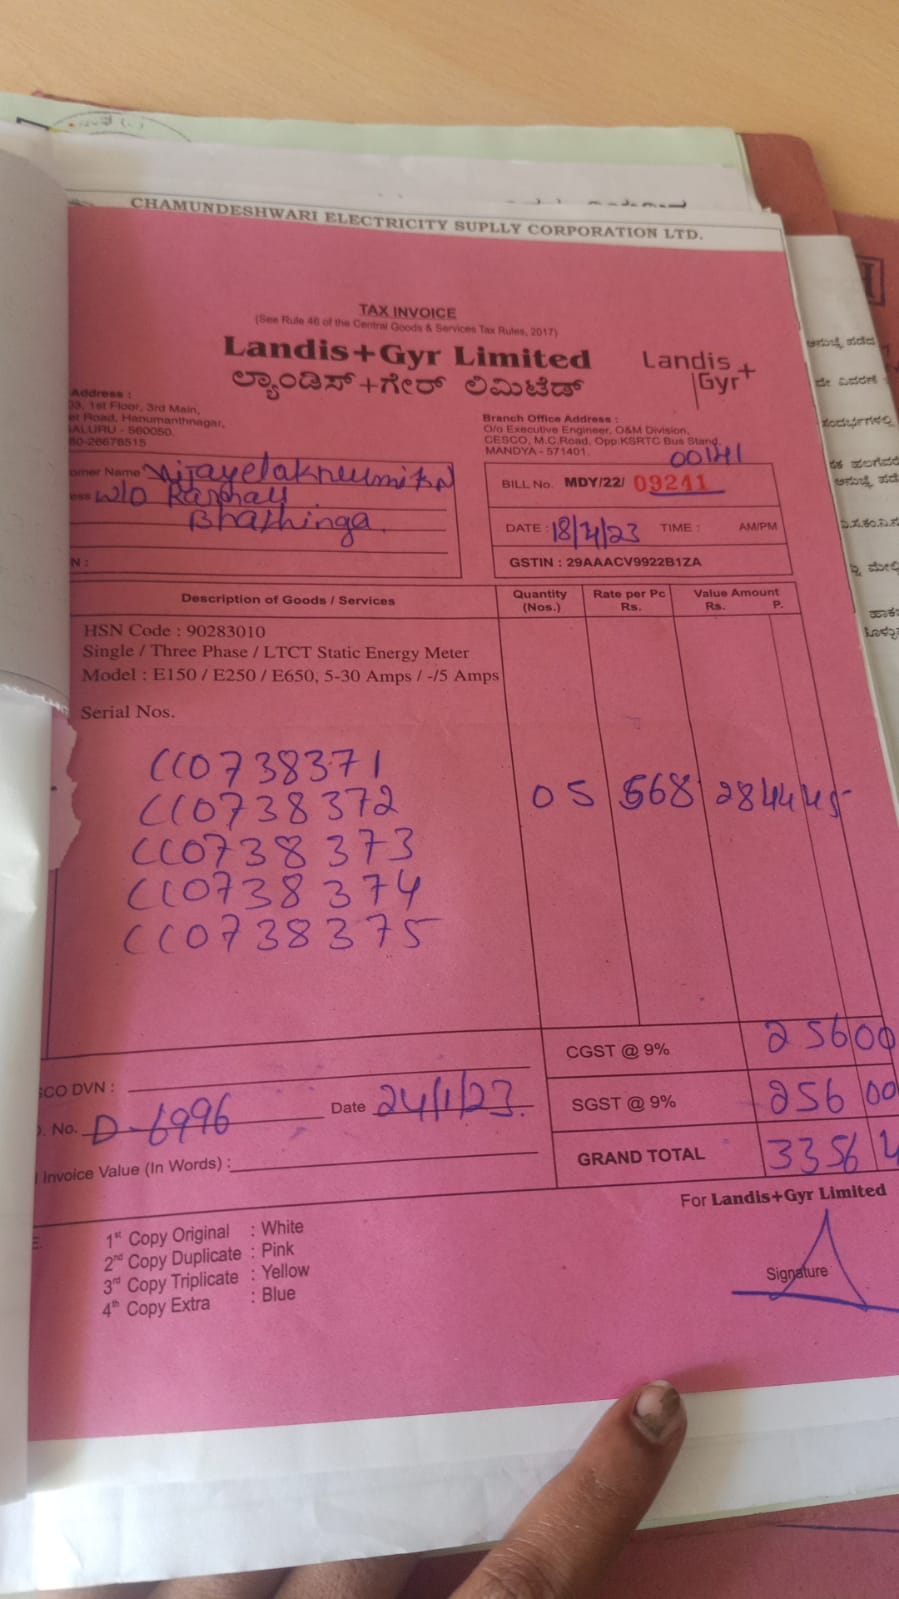 CHAMUNDESHWARI ELECTRICITY SUPLLY CORPORATION LTD.
TAX INVOICE
(See Rule 46 of the Central Goods & Services Tax Rules, 2017)
Landis+Gyr Limited
ಲ್ಯಾಂಡಿಸ್+ಗೇರ್ ಲಿಮಿಟೆಡ್
Landis+
Gyr
Address :
33, 1st Floor, 3rd Main,
et Road, Hanumanthnagar,
ALURU - 560050.
80-26678515
Branch Office Address :
O/o Executive Engineer, O&M Division,
CESCO, M.C.Road, Opp:KSRTC Bus Stand,
MANDYA - 571401.
00141
omer Name
ess W/O
N :
BILL No. MDY/22/ 09241
DATE : 18/4/23 TIME : AM/PM
GSTIN : 29AAACV9922B1ZA
Description of Goods / Services Quantity (Nos.) Rate per Pc Rs. Value Amount Rs. P.
HSN Code : 90283010
Single / Three Phase / LTCT Static Energy Meter
Model : E150 / E250 / E650, 5-30 Amps / -/5 Amps
Serial Nos.
CC0738371
CC0738372 05 568 2844 45
CC0738373
CC0738374
CC0738375
CGST @ 9% 256 00
SGST @ 9% 256 00
GRAND TOTAL 3356 4
SCO DVN :
. No. D-6996 Date 24/1/23.
Invoice Value (In Words) :
For Landis+Gyr Limited
1st Copy Original : White
2nd Copy Duplicate : Pink
3rd Copy Triplicate : Yellow
4th Copy Extra : Blue
Signature